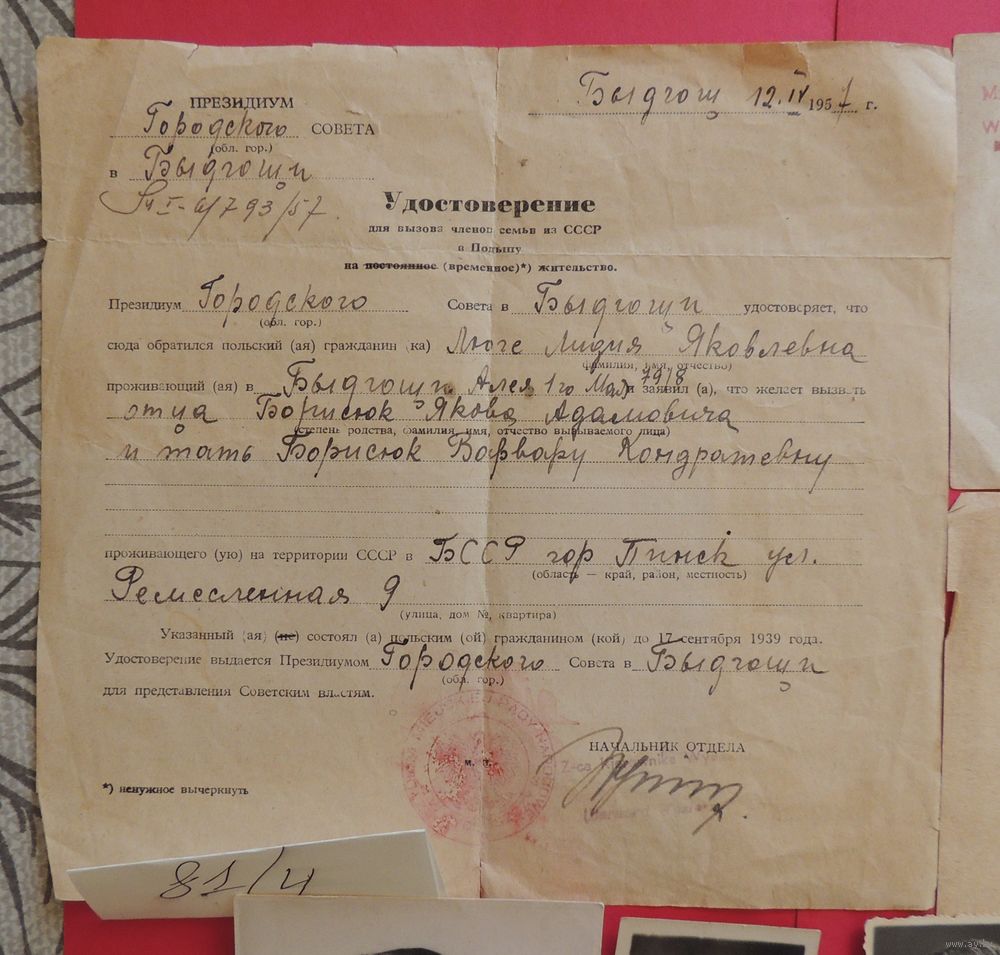 Быдгощ 12.IV 1957 г.
ПРЕЗИДИУМ
Городского СОВЕТА
(обл. гор.)
в Быдгощи
793/57.
Удостоверение
для вызова членов семьи из СССР
в Польшу
на постоянное (временное)*) жительство.
Президиум Городского Совета в Быдгощи удостоверяет, что
(обл. гор.)
сюда обратился польский (ая) гражданин (ка) Люге Лидия Яковлевна
(фамилия, имя, отчество)
проживающий (ая) в Быдгощи Алея 1го Мая 79/8 и заявил (а), что желает вызвать
отца Борисюк Якова Адамовича
(степень родства, фамилия, имя, отчество вызываемого лица)
и мать Борисюк Варвару Кондратевну
проживающего (ую) на территории СССР в БССР гор Пинск ул.
(область — край, район, местность)
Ремесленная 9
(улица, дом №, квартира)
Указанный (ая) (не) состоял (а) польским (ой) гражданином (кой) до 17 сентября 1939 года.
Удостоверение выдается Президиумом Городского Совета в Быдгощи
(обл. гор.)
для представления Советским властям.
НАЧАЛЬНИК ОТДЕЛА
Z-ca Kierownika
м. п.
*) ненужное вычеркнуть
81/4
www.ay.by